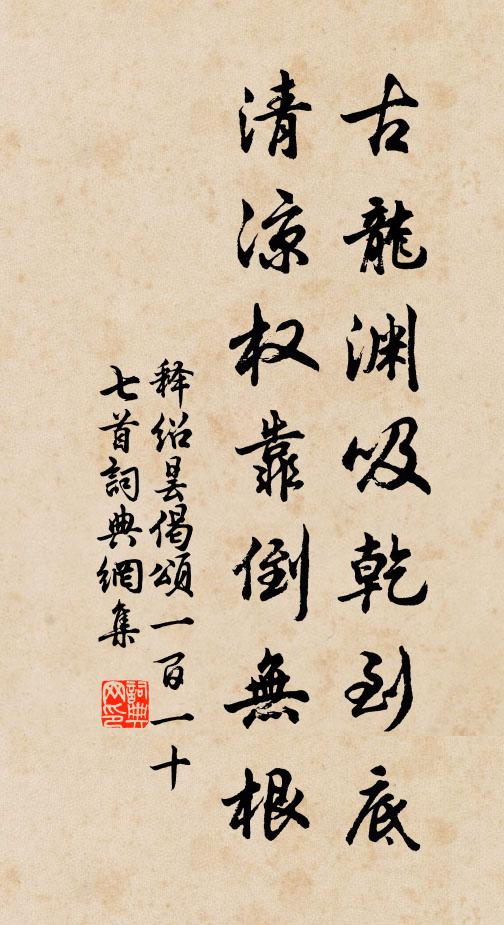 古龍渊吸乾到底
清凉权靠倒無根
释绍昙偈頌一百一十
七首詞典網集
詞典网印